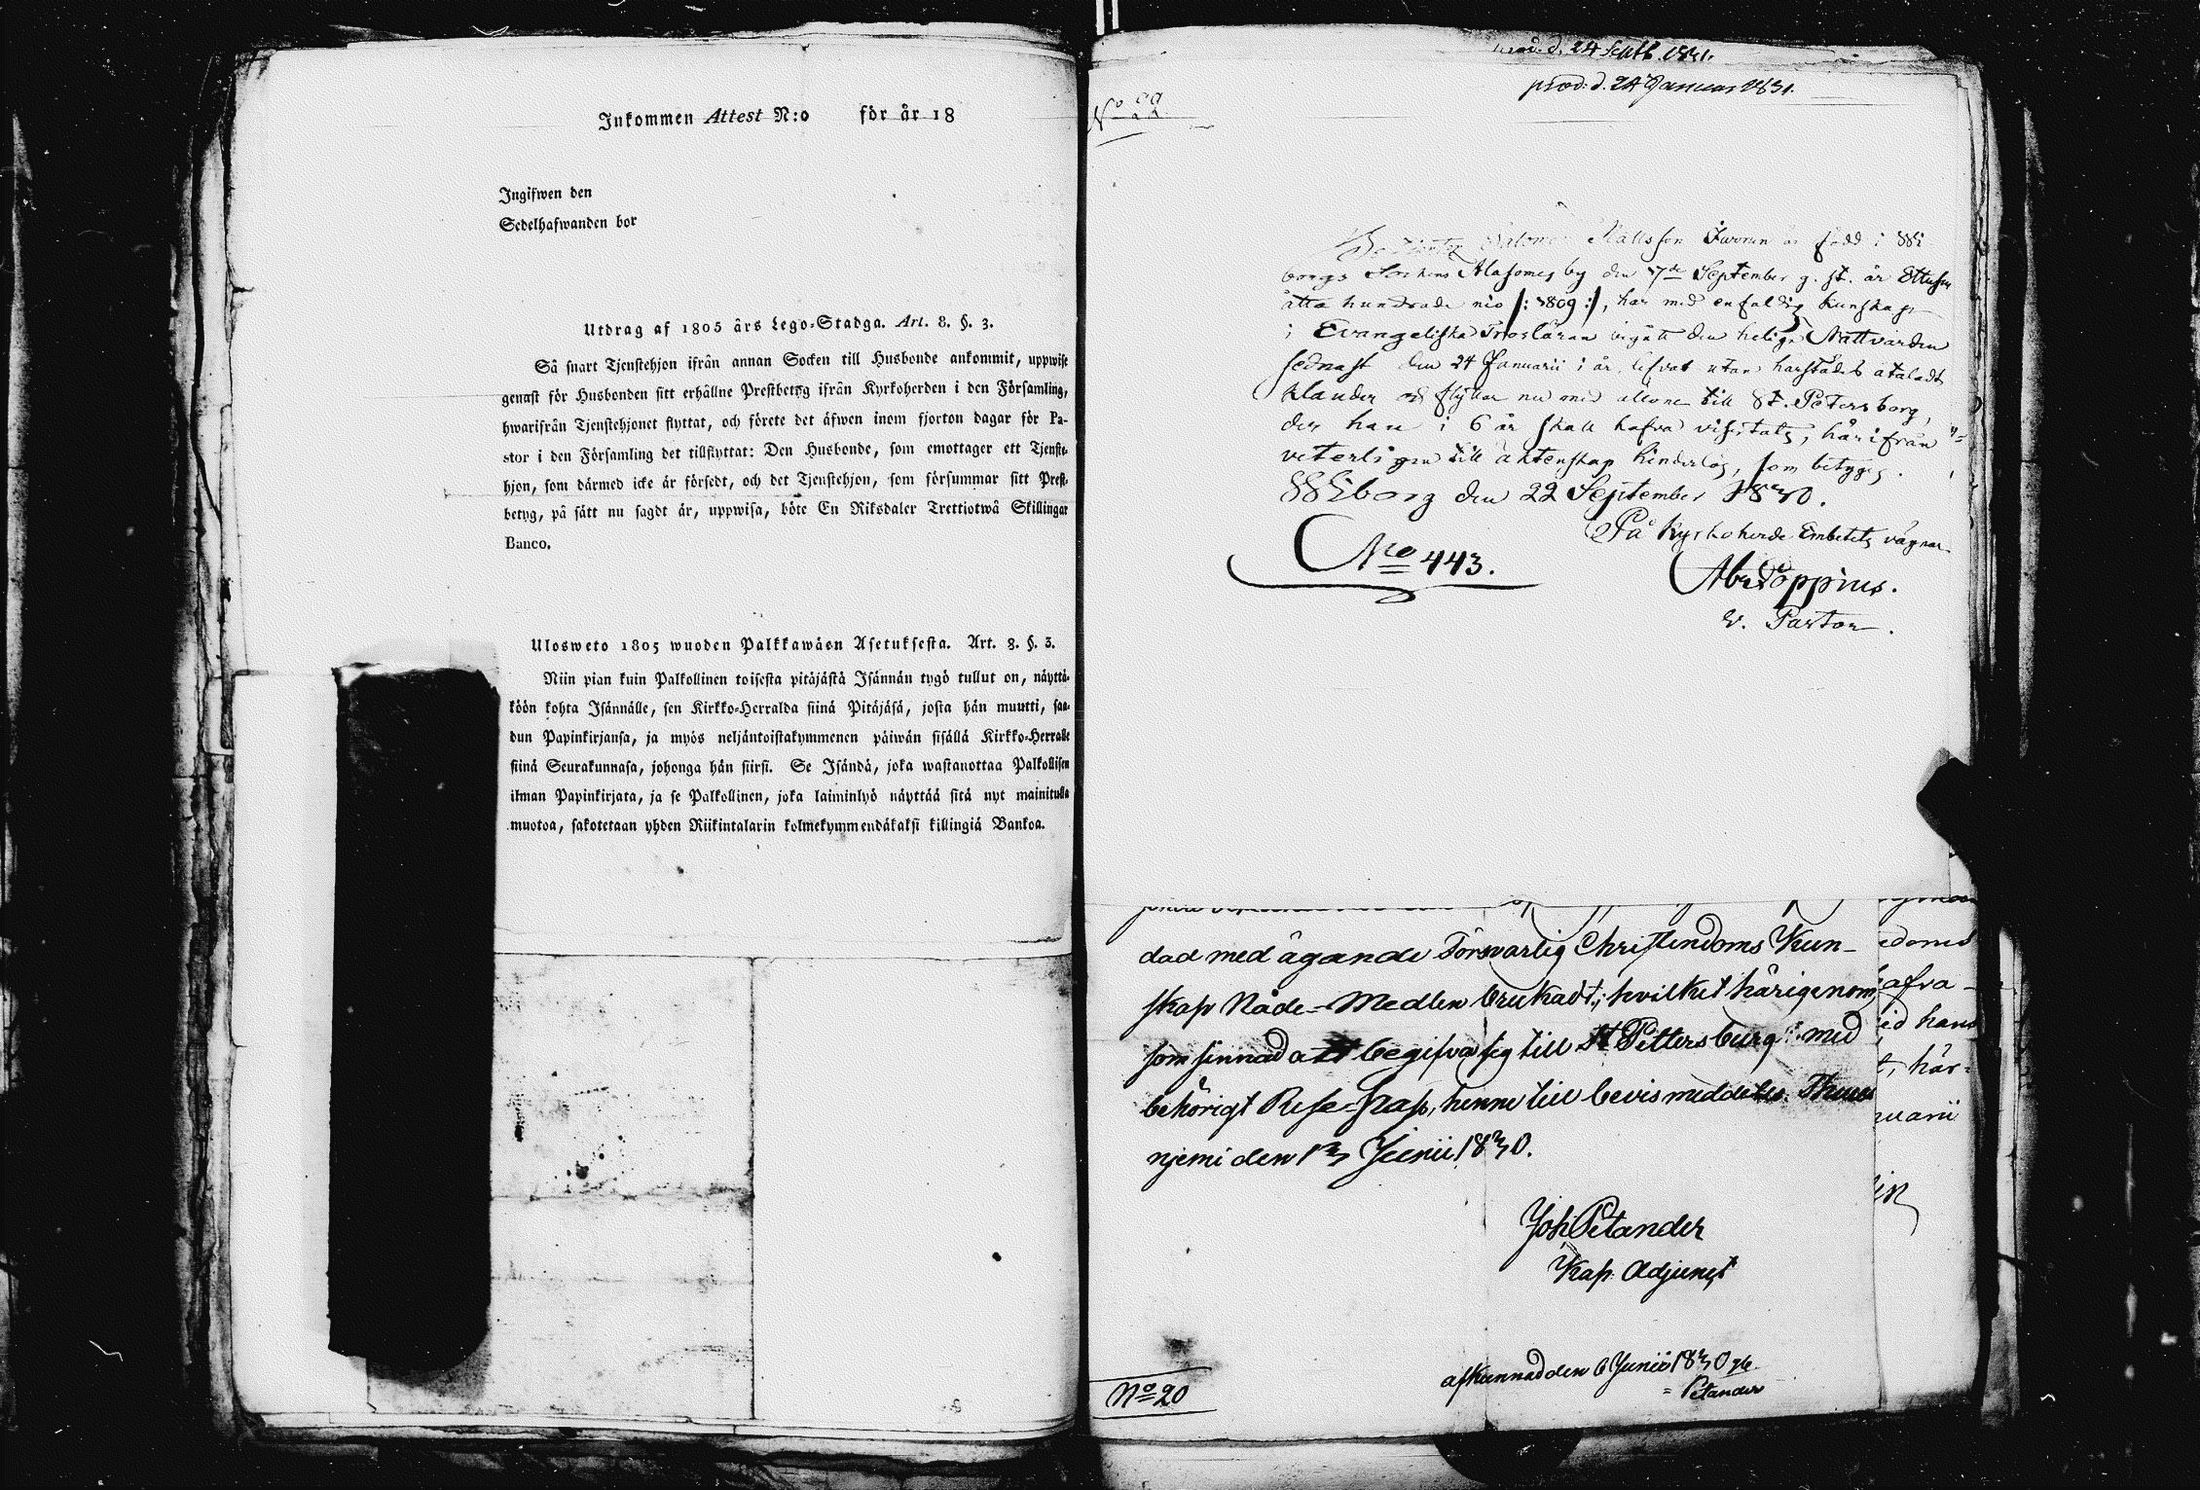 Inkommen Attest N:o för år 18
Ingifwen den
Sedelhafwanden bor
Utdrag af 1805 års Lego-Stadga. Art. 8. §. 3.
Så snart Tjenstehjon ifrån annan Socken till Husbonde ankommit, uppwise
genast för Husbonden sitt erhållne Prestbetyg ifrån Kyrkoherden i den Församling,
hwarifrån Tjenstehjonet flyttat, och förete det äfwen inom fjorton dagar för Pa-
stor i den Församling det tillflyttat: Den Husbonde, som emottager ett Tjenste-
hjon, som därmed icke är försedt, och det Tjenstehjon, som försummar sitt Prest-
betyg, på sätt nu sagdt är, uppwisa, böte En Riksdaler Trettiotwå Skillingar
Banco.
Ulosweto 1805 wuoden Palkkawäen Asetuksesta. Art. 8. §. 3.
Niin pian kuin Palkollinen toisesta pitäjästä Isännän tygö tullut on, näyttä-
köön kohta Isännälle, sen Kirkko-Herralda siinä Pitäjäsä, josta hän muutti, saa-
dun Papinkirjansa, ja myös neljäntoistakymmenen päiwän sisällä Kirkko-Herralle
siinä Seurakunnasa, johonga hän siirsi. Se Isändä, joka wastanottaa Palkollisen
ilman Papinkirjata, ja se Palkollinen, joka laiminlyö näyttää sitä nyt mainitulla
muotoa, sakotetaan yhden Riikintalarin kolmekymmendäkaksi killingiä Bankoa.
d. 24 Septb. 1831.
prod. d. 24 Januar 1831.
No 22
Mattsson är född i Wi
borgs Sockens Alasomes by den 7de September g. st. år Ettusen
åtta hundrade nio /: 1809 :/, har med enfaldig kunskap
i Evangeliska Trosläran begått den heliga Nattvarden
sednast den 24 Januarii i år, lefvat utan härstädes åtaladt
klander och flyttar nu med till St. Petersborg,
der han i 6 år skall hafva vistats, härifrån
veterligen till äktenskap hinderlös, som betygas.
Wiborg den 22 September 1830.
På Kyrkoherde Embetets vägnar
No 443.
Abr Poppius.
v. Pastor.
dad med ägande Försvarlig Christendoms Kun-
skap Nåde-Medlen brukadt; hvilket härigenom
som sinnad att begifva sig till St Pettersburg med
behörigt Rese-Pass, henne till bevis meddelas.
njemi den 1 Junii 1830.
Joh Petander
Kap. Adjunct
afkunnad den 6 Junii 1830
Petander
No 20
edoms
hafva
id hans
t, här-
nuarii